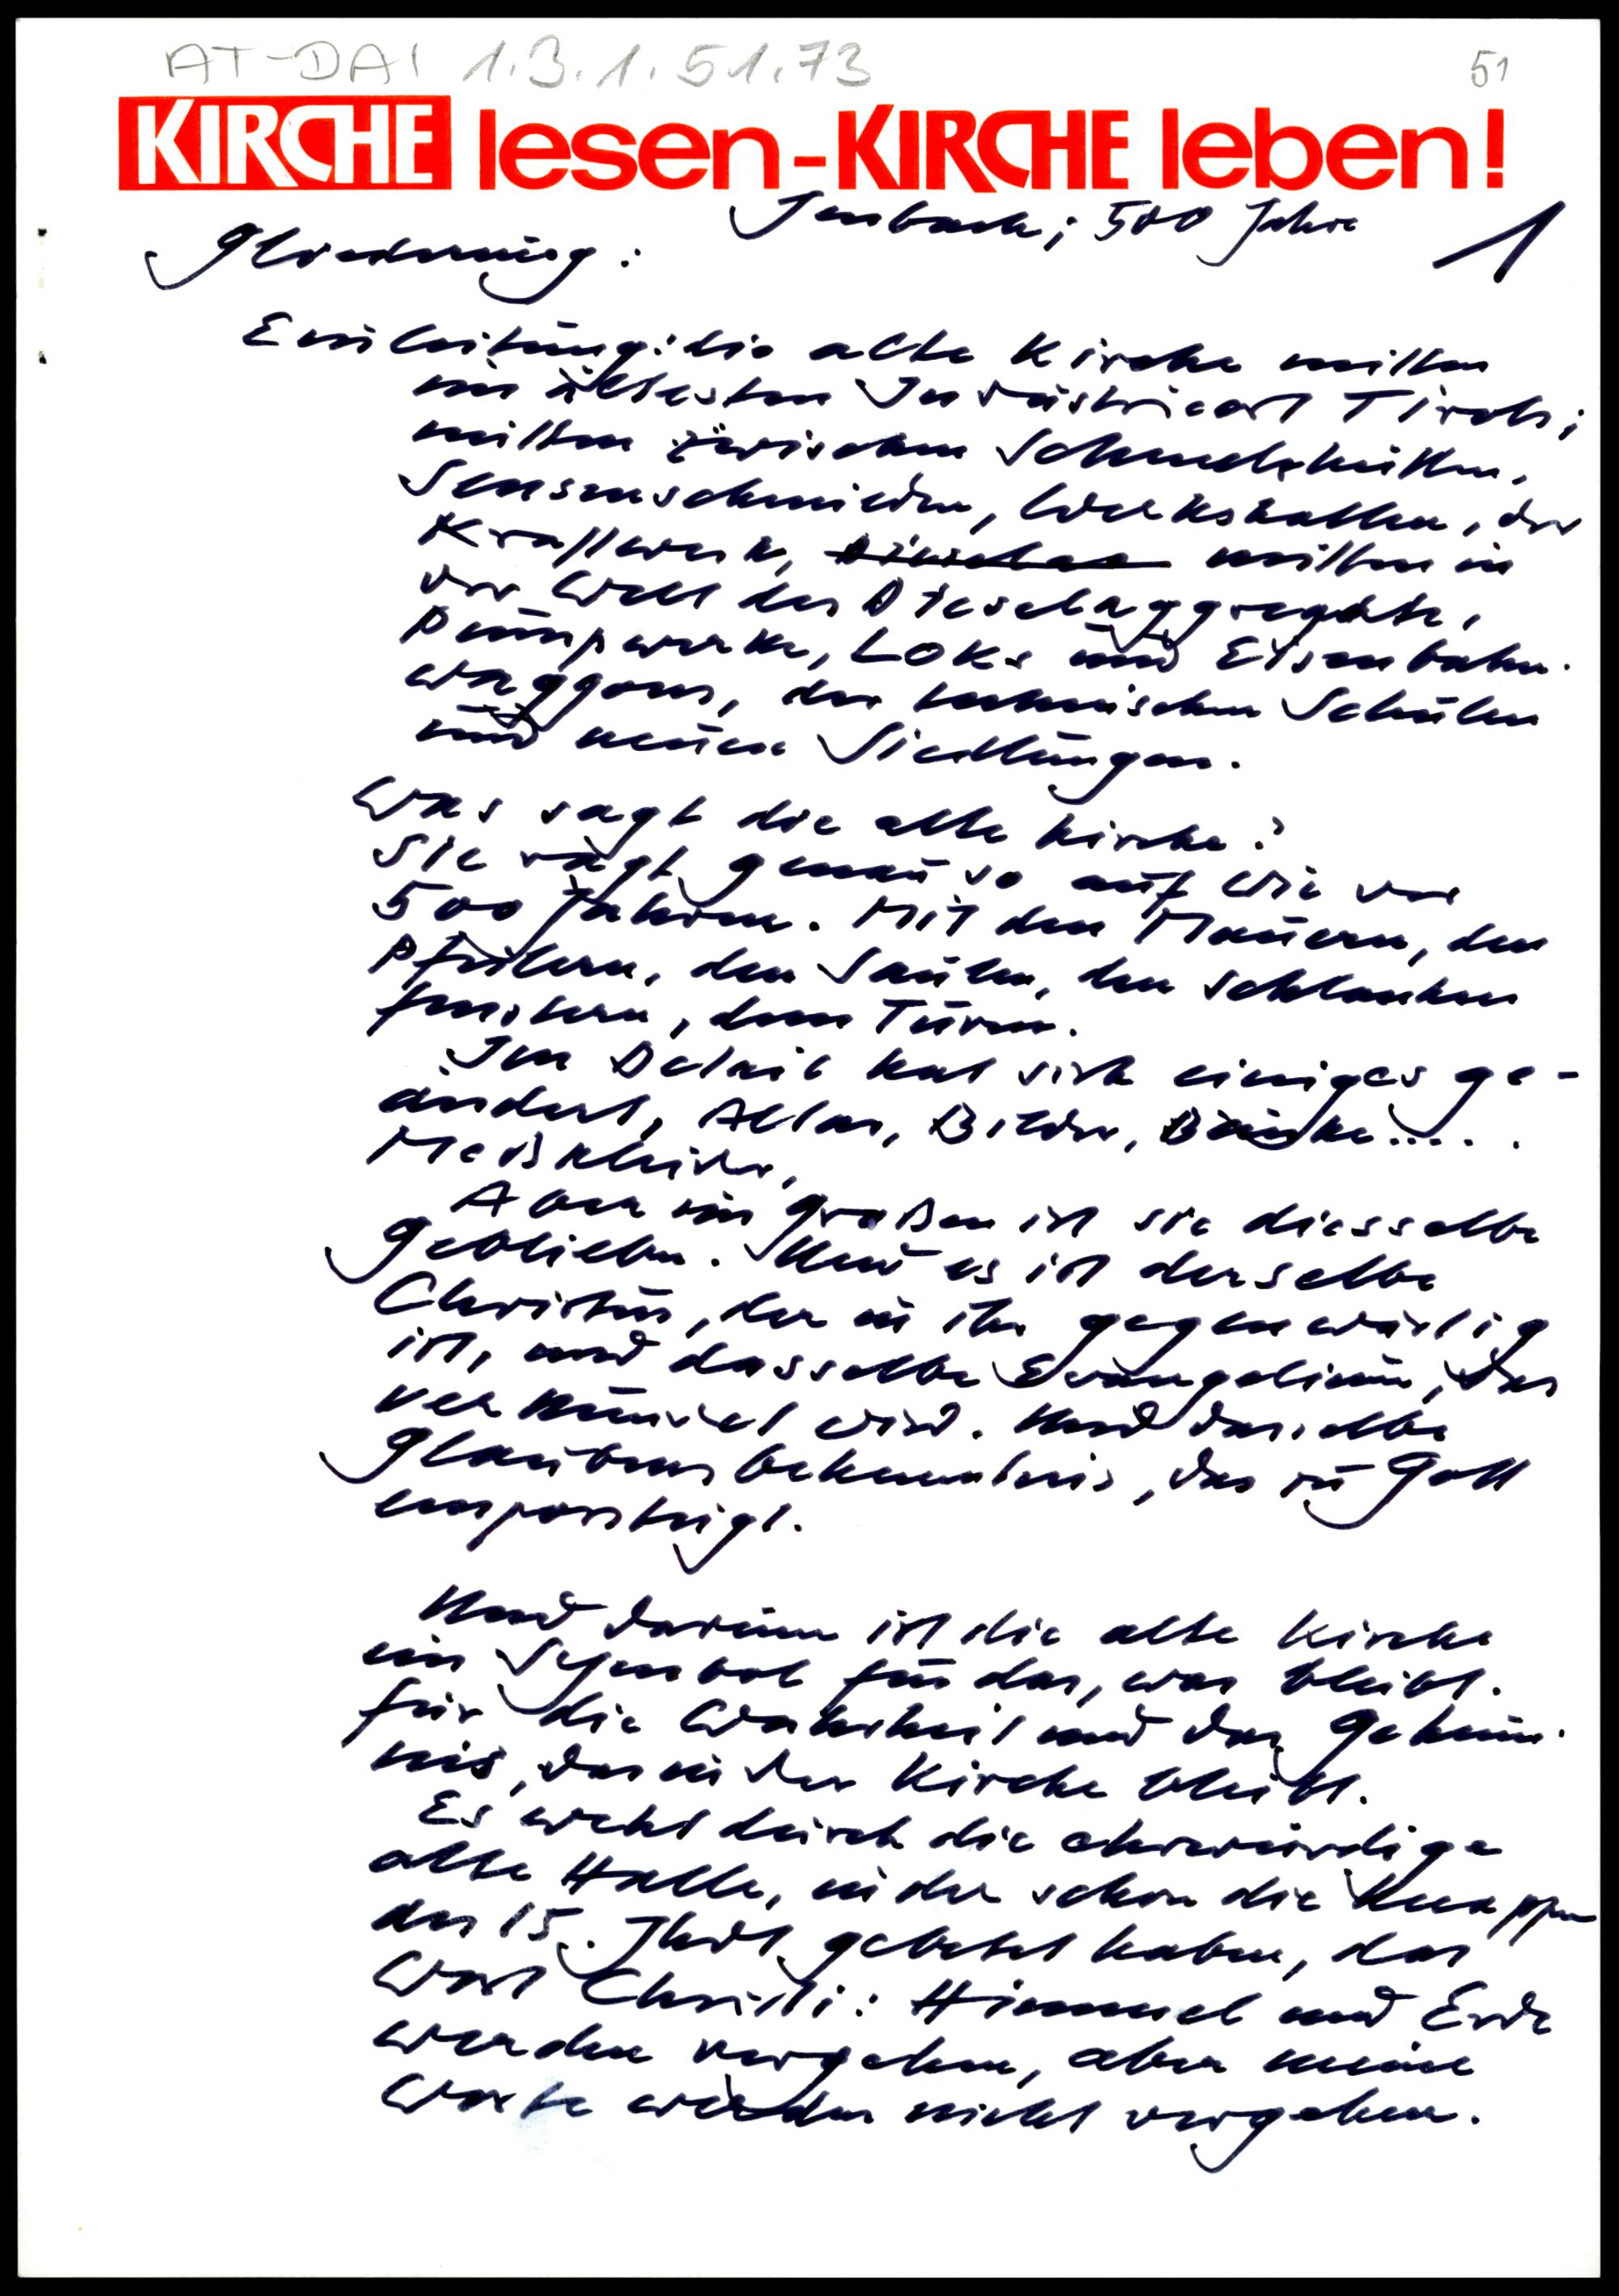 AT-DAI 1.3.1.51.73
51
KIRCHE lesen-KIRCHE leben!
Jenbach; 500 Jahre
1
Gliederung:
Einleitung: die alte Kirche mitten
im ältesten Industrieort Tirols;
mitten zwischen Schmelzhütten,
Sensenschmieden, Werkshallen, der
Kraftwerk, mitten in
der Welt der Dieselaggregate,
Pumpwerke, LOKs und Eisenbahn-
waggons, der technischen Schulen
und neuen Siedlungen.
Was sagt die alte Kirche?
Sie ragt genau so auf wie vor
500 Jahren. Mit den Mauern, den
Pfeilern, den Säulen, den schlanken
Fenstern, dem Turm.
Im Detail hat sich einiges ge-
ändert, Altar, Bilder, Bänke.....
Meßkleider,
Aber im Großen ist sie diesselbe
geblieben. Und es ist derselbe
Christus, der in ihr gegenwärtig
ist, und dasselbe Evangelium, das
verkündet wird. Und dasselbe
Glaubensbekenntnis, das zu Gott
emporsteigt.
Und darum ist die alte Kirche
ein Symbol für das, was bleibt.
für die Wahrheit und das Geheim-
nis, das in der Kirche bleibt.
Es weht durch die ehrwürdige
alte Halle, in der schon die Knappen
des 15. Jhdt gebetet haben, das
Wort Christi: Himmel und Erde
werden vergehen, aber meine
Worte werden nicht vergehen.